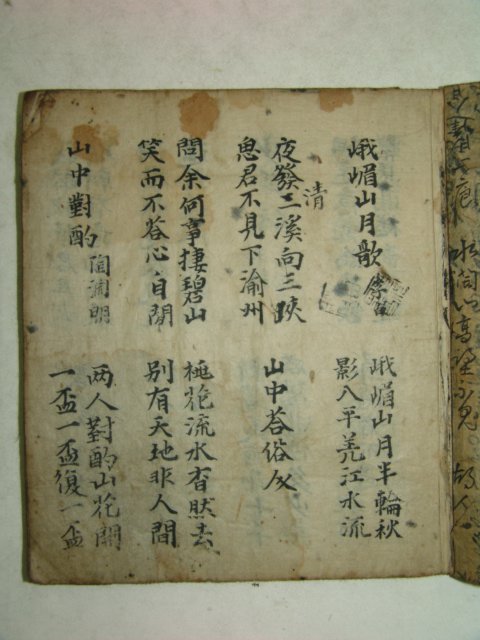 峨嵋山月歌 李白
峨嵋山月半輪秋
影入平羌江水流
清
夜發三溪向三陜
思君不見下渝州
山中荅俗
問余何事捿碧山
笑而不荅心自閒
桃花流水杳然去
別有天地非人間
山中對酌 陶淵明
两人對酌山花開
一盃一盃復一盃